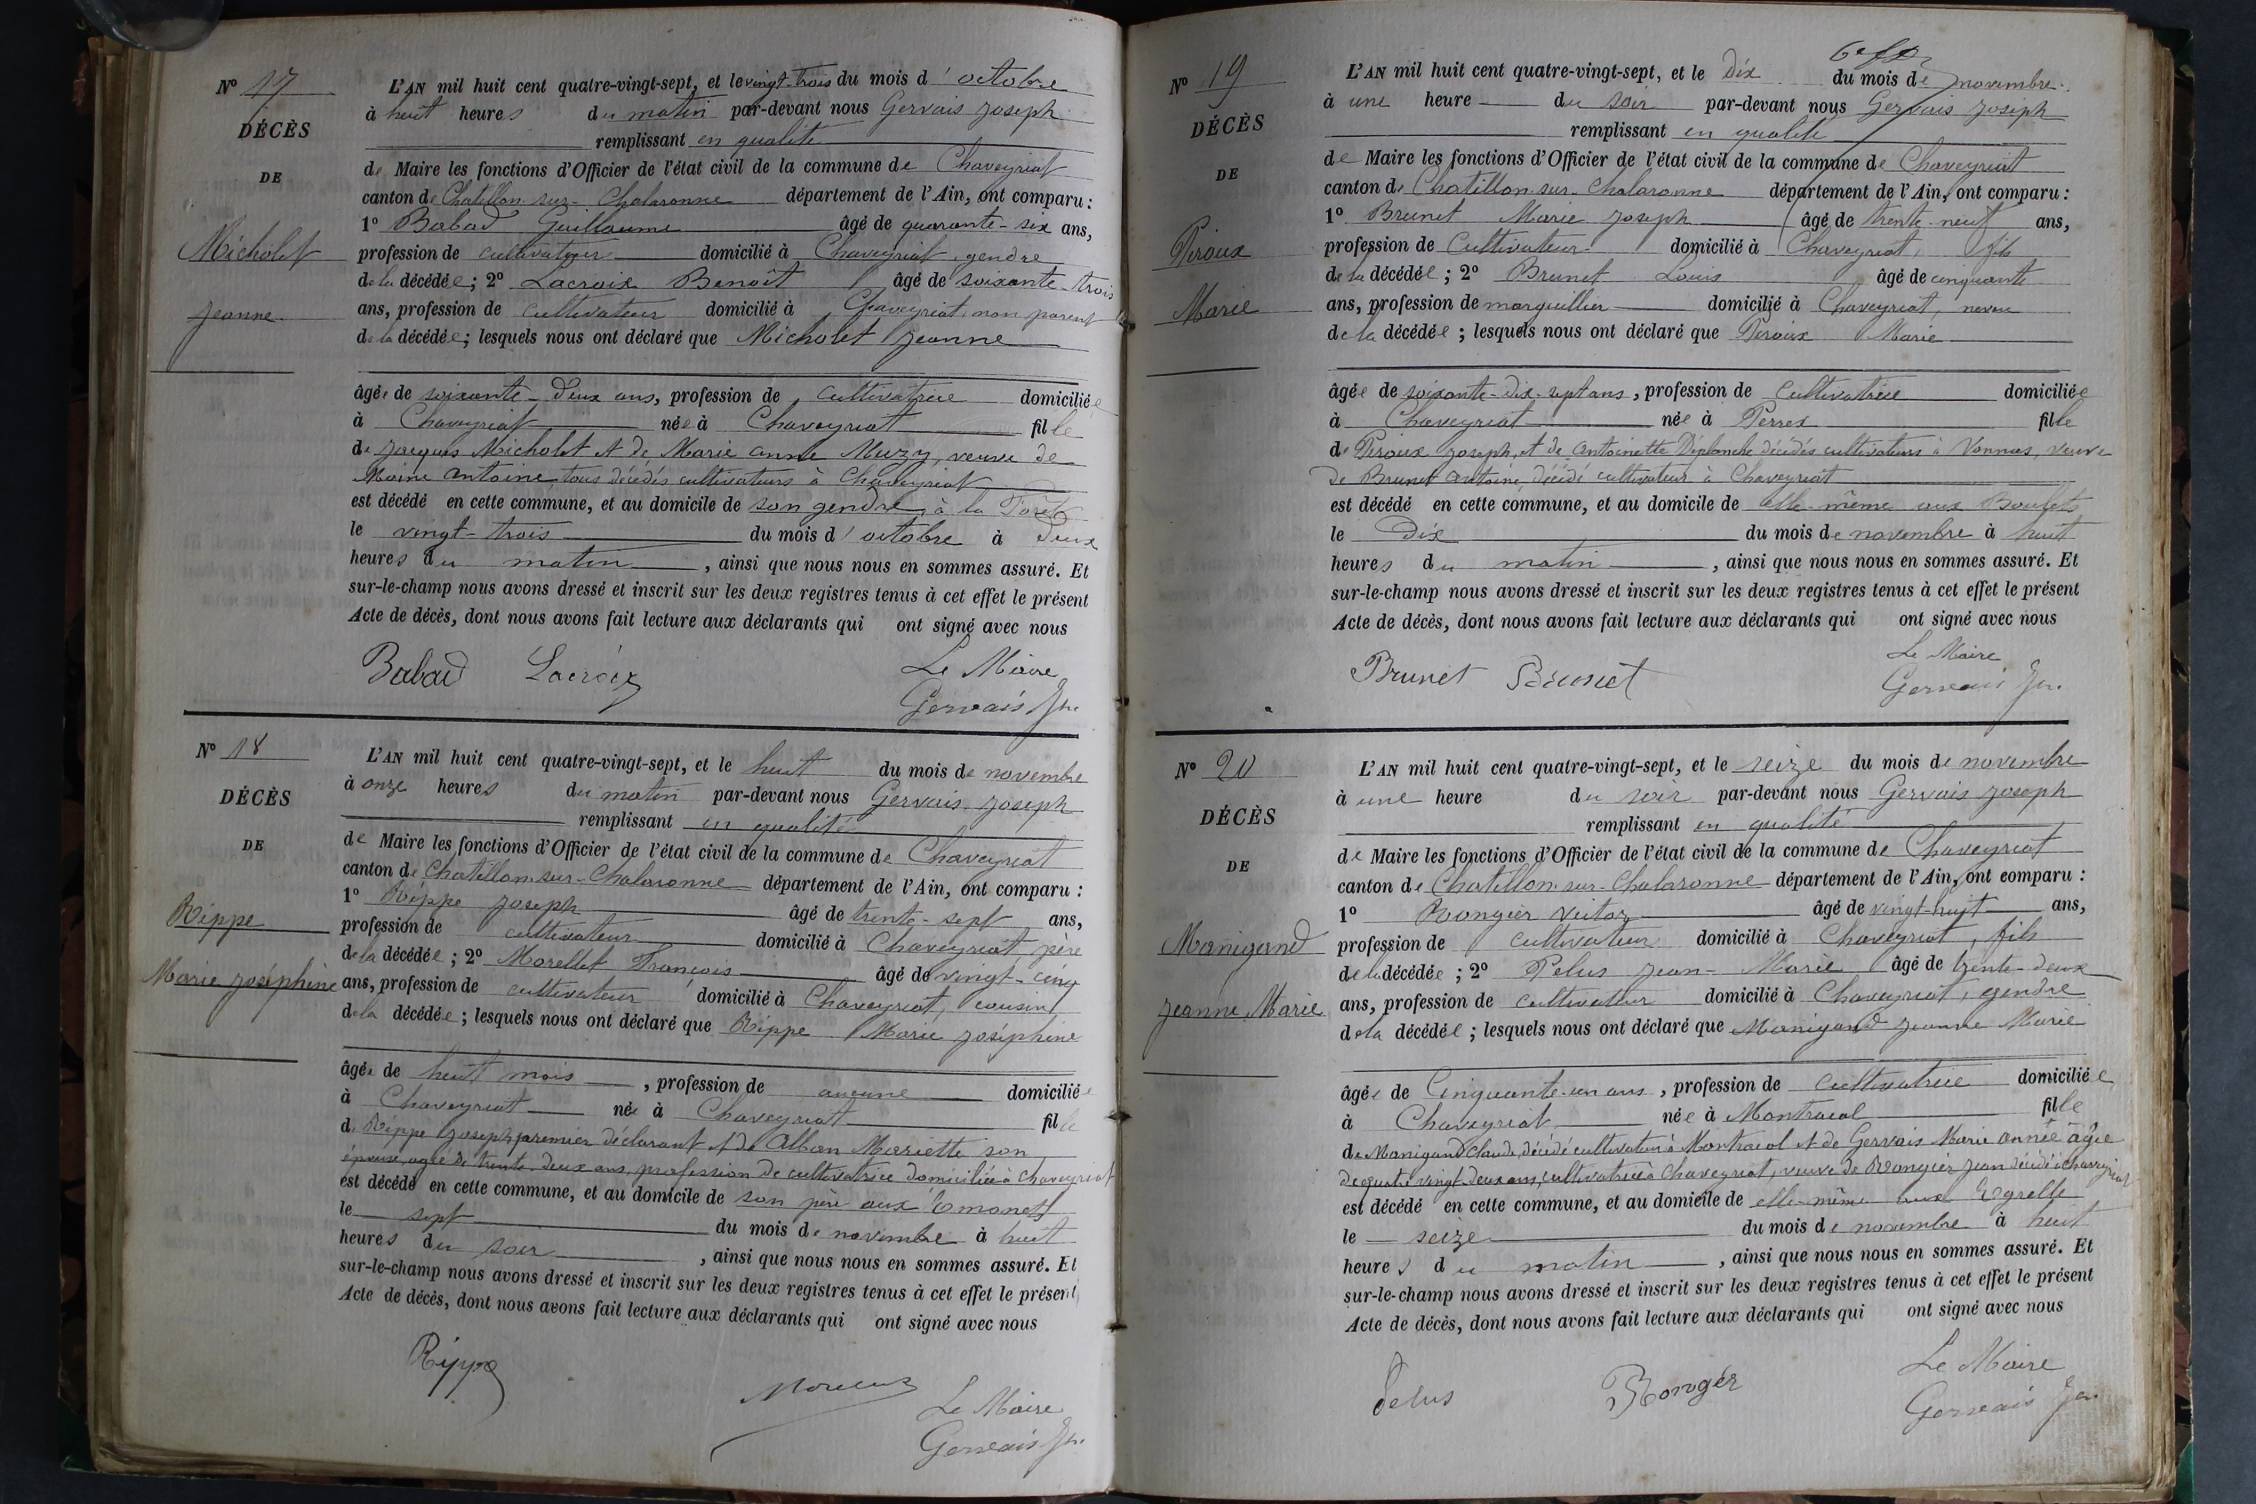 N° 17
DÉCÈS
DE
Micholet
Jeanne
L'AN mil huit cent quatre-vingt-sept, et le vingt-trois du mois d'octobre
à huit heures du matin par-devant nous Gervais Joseph
remplissant en qualité
de Maire les fonctions d'Officier de l'état civil de la commune de Chaveyriat
canton de Chatillon-sur-Chalaronne département de l'Ain, ont comparu :
1° Babad Guillaume âgé de quarante-six ans,
profession de cultivateur domicilié à Chaveyriat, gendre
de la décédée ; 2° Lacroix Benoît âgé de soixante-trois
ans, profession de cultivateur domicilié à Chaveyriat, non parent
de la décédée ; lesquels nous ont déclaré que Micholet Jeanne
âgée de soixante-deux ans, profession de cultivatrice domiciliée
à Chaveyriat née à Chaveyriat fille
de Jacques Micholet et de Marie anne Muzy, veuve de
Moine antoine, tous décédés cultivateurs à Chaveyriat
est décédé en cette commune, et au domicile de son gendre, à la Forêt
le vingt-trois du mois d'octobre à deux
heures du matin, ainsi que nous nous en sommes assuré. Et
sur-le-champ nous avons dressé et inscrit sur les deux registres tenus à cet effet le présent
Acte de décès, dont nous avons fait lecture aux déclarants qui ont signé avec nous
Babad Lacroix Le Maire
Gervais Jh.
N° 18
DÉCÈS
DE
Rippe
Marie Joséphine
L'AN mil huit cent quatre-vingt-sept, et le huit du mois de novembre
à onze heures du matin par-devant nous Gervais Joseph
remplissant en qualité
de Maire les fonctions d'Officier de l'état civil de la commune de Chaveyriat
canton de Chatillon-sur-Chalaronne département de l'Ain, ont comparu :
1° Rippe Joseph âgé de trente-sept ans,
profession de cultivateur domicilié à Chaveyriat, père
de la décédée ; 2° Morellet François âgé de vingt-cinq
ans, profession de cultivateur domicilié à Chaveyriat, cousin
de la décédée ; lesquels nous ont déclaré que Rippe Marie Joséphine
âgée de huit mois, profession de aucune domiciliée
à Chaveyriat née à Chaveyriat fille
de Rippe Joseph premier déclarant et de Alban Mariette son
épouse, agée de trente-deux ans, profession de cultivatrice domiciliée à Chaveyriat
est décédé en cette commune, et au domicile de son père aux
le sept du mois de novembre à huit
heures du soir, ainsi que nous nous en sommes assuré. Et
sur-le-champ nous avons dressé et inscrit sur les deux registres tenus à cet effet le présent
Acte de décès, dont nous avons fait lecture aux déclarants qui ont signé avec nous
Rippe
Le Maire
Gervais Jh.
N° 19
DÉCÈS
DE
Piroux
Marie
L'AN mil huit cent quatre-vingt-sept, et le Dix du mois de novembre
à une heure du soir par-devant nous Gervais Joseph
remplissant en qualité
de Maire les fonctions d'Officier de l'état civil de la commune de Chaveyriat
canton de Chatillon-sur-Chalaronne département de l'Ain, ont comparu :
1° Brunet Marie Joseph âgé de trente-neuf ans,
profession de cultivateur domicilié à Chaveyriat, fils
de la décédée ; 2° Brunet Louis âgé de cinquante
ans, profession de marguillier domicilié à Chaveyriat, neveu
de la décédée ; lesquels nous ont déclaré que Piroux Marie
âgée de soixante-dix-sept ans, profession de cultivatrice domiciliée
à Chaveyriat née à Perrex fille
de Piroux Joseph, et de Antoinette Déplanche décédés cultivateurs à Vonnas, veuve
de Brunet antoine, décédé cultivateur à Chaveyriat
est décédé en cette commune, et au domicile de elle-même aux Boulets
le Dix du mois de novembre à huit
heures du matin, ainsi que nous nous en sommes assuré. Et
sur-le-champ nous avons dressé et inscrit sur les deux registres tenus à cet effet le présent
Acte de décès, dont nous avons fait lecture aux déclarants qui ont signé avec nous
Brunet Brunet Le Maire
Gervais Jh.
N° 20
DÉCÈS
DE
Manigand
Jeanne Marie
L'AN mil huit cent quatre-vingt-sept, et le seize du mois de novembre
à une heure du soir par-devant nous Gervais Joseph
remplissant en qualité
de Maire les fonctions d'Officier de l'état civil de la commune de Chaveyriat
canton de Chatillon-sur-Chalaronne département de l'Ain, ont comparu :
1° Rongier Victor âgé de vingt-huit ans,
profession de cultivateur domicilié à Chaveyriat, fils
de la décédée ; 2° Pelus Jean-Marie âgé de trente-deux
ans, profession de cultivateur domicilié à Chaveyriat, gendre
de la décédée ; lesquels nous ont déclaré que Manigand Jeanne Marie
âgée de Cinquante-un ans, profession de cultivatrice domiciliée
à Chaveyriat née à Montracol fille
de Manigand Claude, décédé cultivateur à Montracol et de Gervais Marie année âgée
de quatre vingt-deux ans, cultivatrice à Chaveyriat, veuve de Rongier Jean décédé à Chaveyriat
est décédé en cette commune, et au domicile de elle-même aux Egrelle
le seize du mois de novembre à huit
heures du matin, ainsi que nous nous en sommes assuré. Et
sur-le-champ nous avons dressé et inscrit sur les deux registres tenus à cet effet le présent
Acte de décès, dont nous avons fait lecture aux déclarants qui ont signé avec nous
Pelus Rongér Le Maire
Gervais Jh.